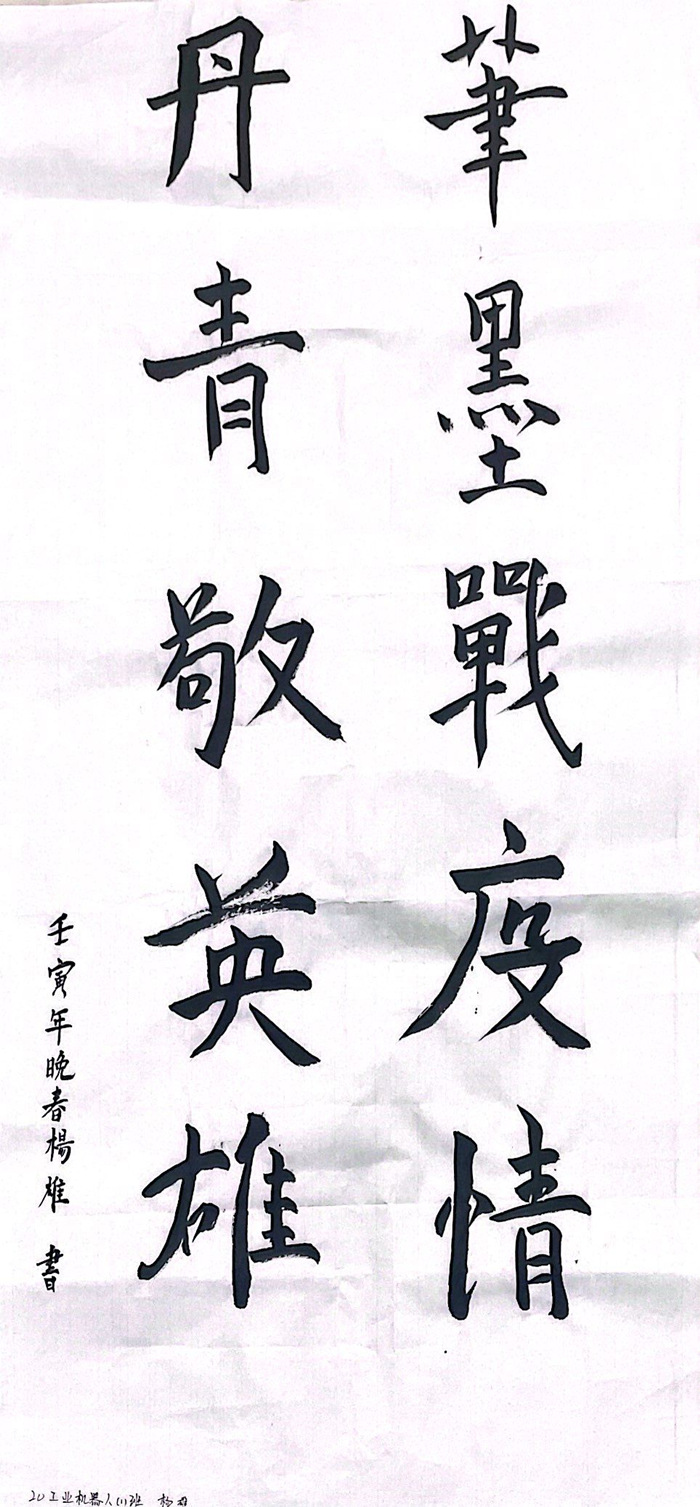 筆墨戰疫情
丹青敬英雄
壬寅年晚春楊雄 書
20工业机器人(1)班 杨雄